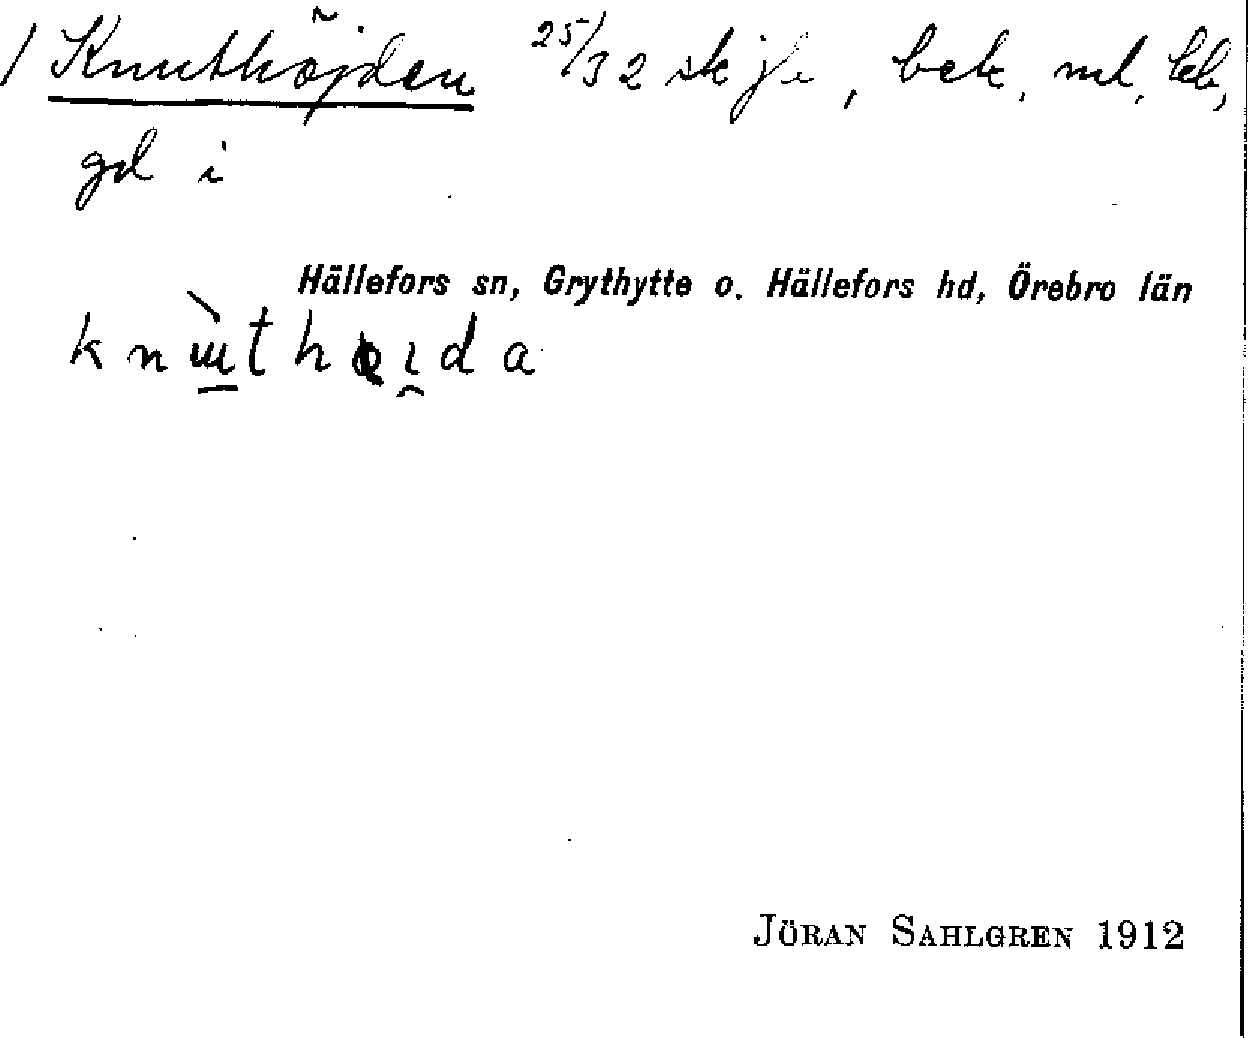 / Knuthöjden 25/32 skjte, bek. ml. bb,
gd i
Hällefors sn, Grythytte o. Hällefors hd, Örebro län
JÖRAN SAHLGREN 1912